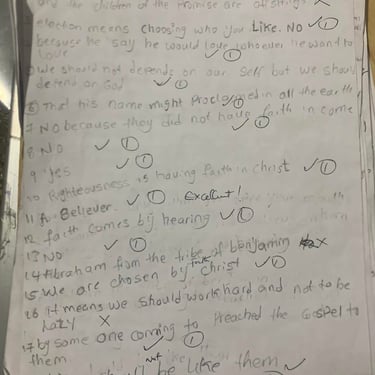 and the children of the Promise are of
election means choosing who you Like. NO ✓ ①
because he say he would love whoever he want to
Love ✓ ①
We should not depends on our self but we should
depend on God ✓ ①
⑥ that his name might Proclaimed in all the earth
7 NO because they did not have faith in come ✓ ①
8 NO ✓ ①
9 yes ✓ ①
10 Righteousness is having faith in Christ ✓ ①
11 A Believer ✓ ① Excellent!
12 faith comes by hearing ✓ ①
13 NO ✓ ①
14 Abraham from the tribe of benjamin X
15 We are chosen by faith Christ ✓ ①
16 it means we should work hard and not to be
Lazy X
17 by some one coming to Preached the Gospel to
them ✓ ①
not
be like them ✓